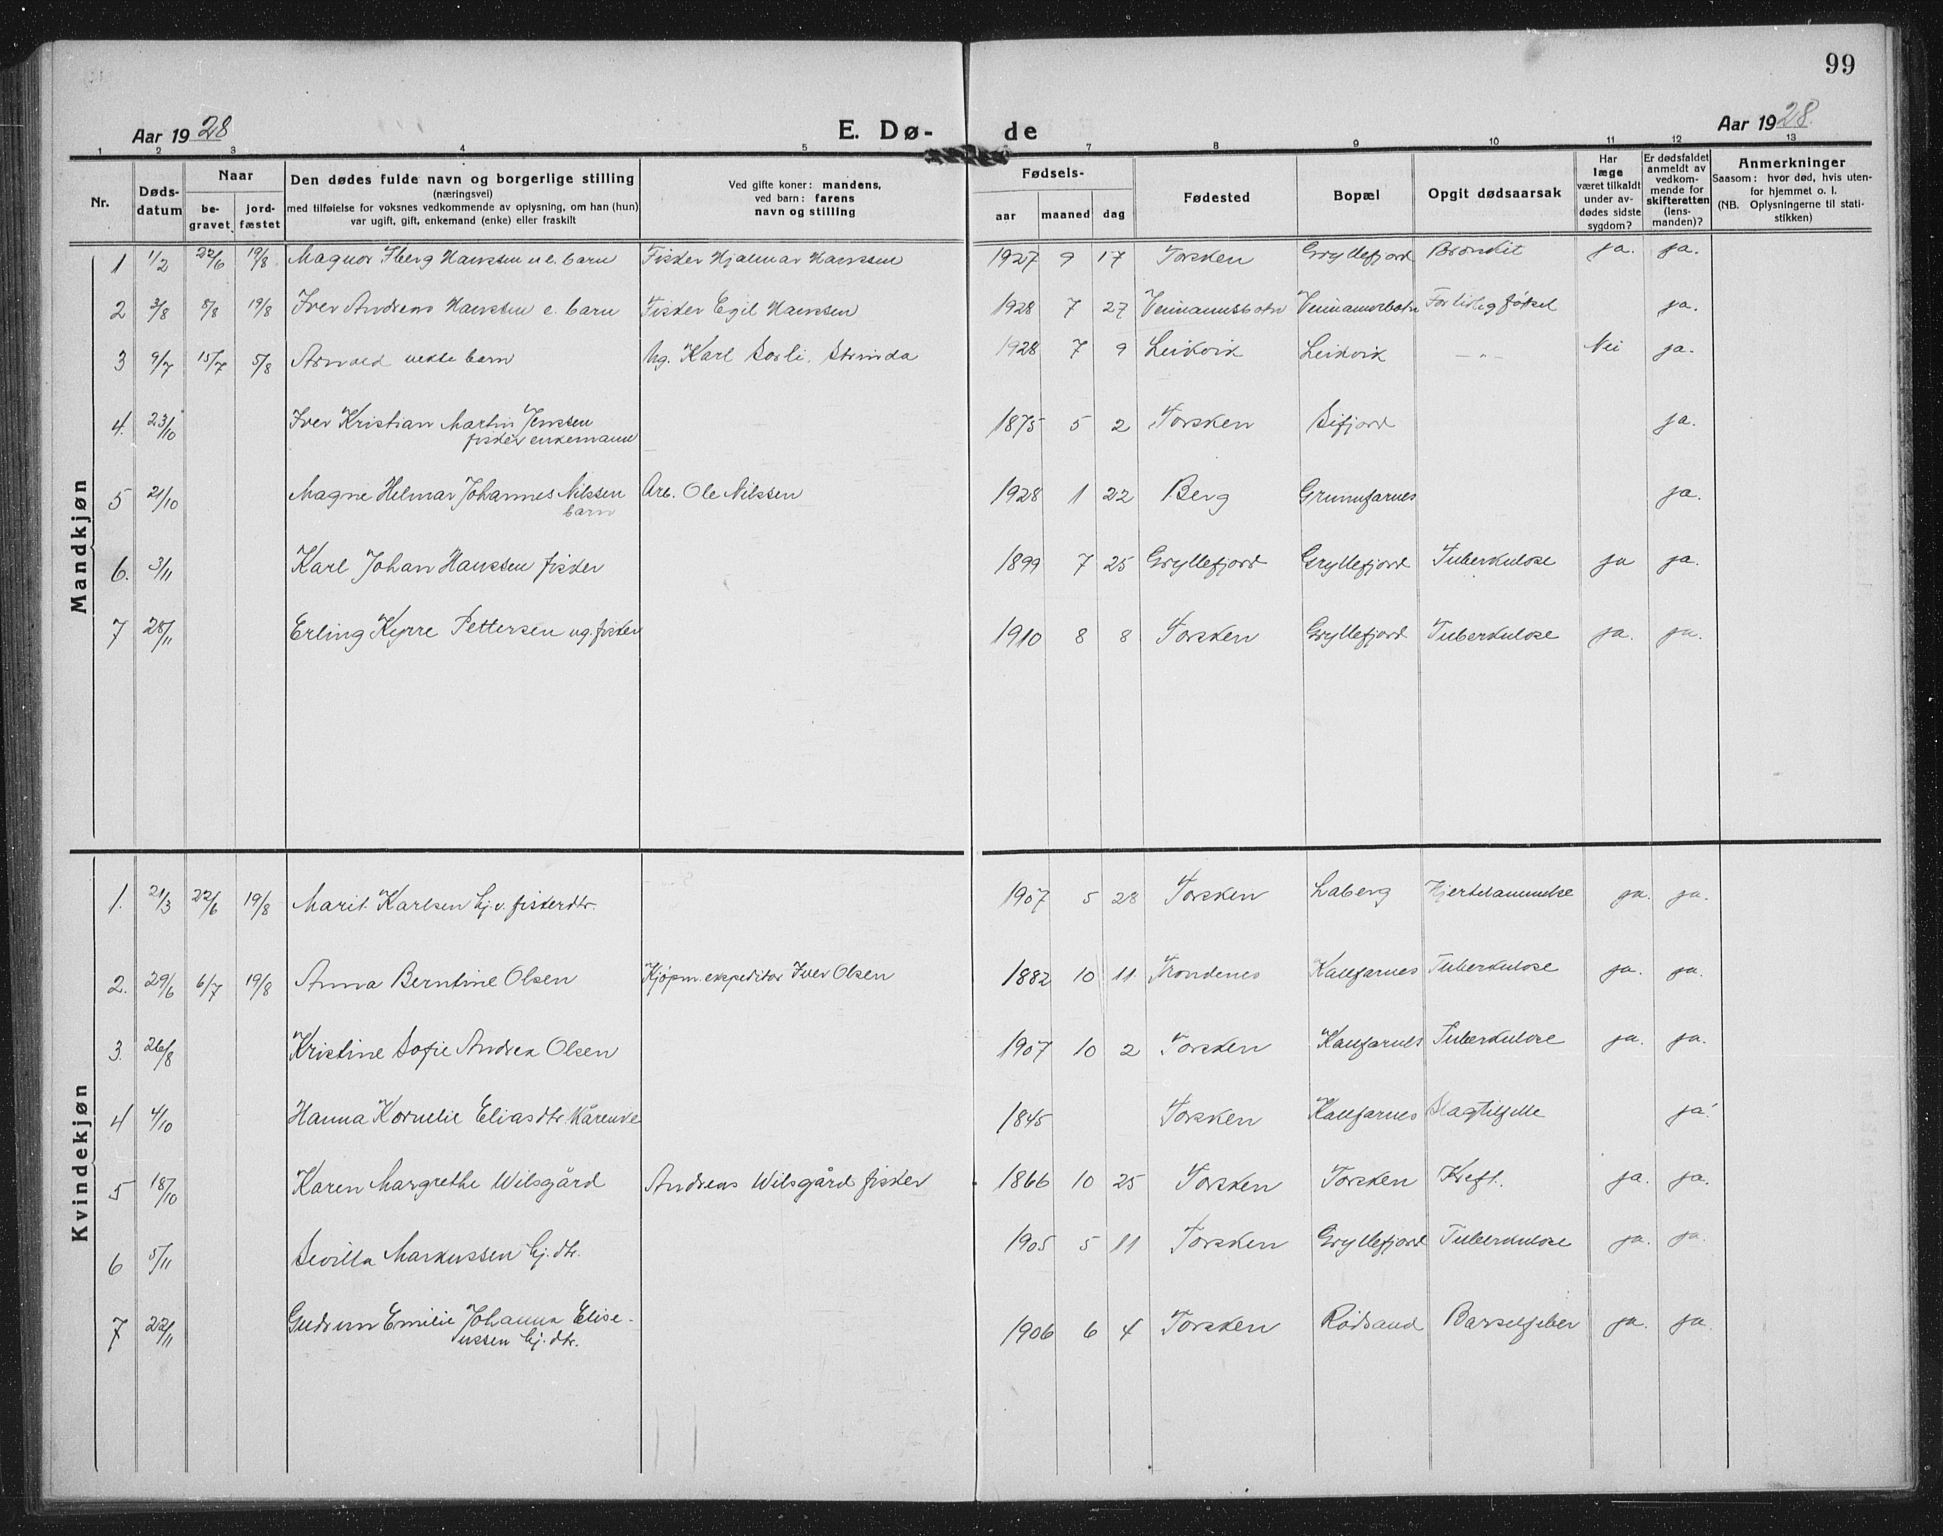 99
Aar 1928 E. Dø- de Aar 1928.
1 2 3 4 5 7 8 9 10 11 12 13
Nr. Døds-datum Naar begravet jordfæstet
Den dødes fulde navn og borgerlige stilling
(næringsvei)
med tilføielse for voksnes vedkommende av oplysning, om han (hun)
var ugift, gift, enkemand (enke) eller fraskilt
Ved gifte koner: mandens,
ved barn: farens
navn og stilling
Fødsels- aar maaned dag
Fødested
Bopæl
Opgit dødsaarsak
Har læge været tilkaldt under avdødes sidste sygdom?
Er dødsfaldet anmeldt av vedkommende for skifteretten (lensmanden)?
Anmerkninger
Saasom: hvor død, hvis utenfor hjemmet o. l.
(NB. Oplysningerne til statistikken)
Mandkjøn
1 1/2 22/6 19/8 Magnor Hansen barn Fisker Hjalmar Hanssen 1927 9 17 Torsken Gryllefjord Bronkit ja. ja.
2 3/8 8/8 19/8 Iver Andreas Hanssen e. barn Fisker Egil Hanssen 1928 7 27 For tidlig fødsel ja.
3 9/7 15/7 5/8 Arnold uekte barn Ug. Karl Strinda 1928 7 9 Leikvik Leikvik —"— Nei ja.
4. 23/10 Iver Kristian Martin Jenssen 1875 5 2 Torsken Sifjord ja.
fisker enkemann
5 21/10 Magne Helmar Johannes Nilssen Arb. Ole Nilssen 1928 1 22 Berg Grunnfarnes ja.
barn
6. 3/11 Karl Johan Hanssen fisker 1899 7 25 Gryllefjord Gryllefjord Tuberkulose ja ja.
7 28/11 Erling Kyrre Pettersen ug. fisker 1910 8 8 Torsken Gryllefjord Tuberkulose ja. ja.
Kvindekjøn
1. 21/3 22/6 19/8 Marit Karlsen fiskerdtr. 1907 5 28 Torsken Laberg ja. ja.
2. 29/6 6/7 19/8 Anna Berntine Olsen Kjøpm. ekspeditor Iver Olsen 1882 10 11 Trondenes Kalfarnes Tuberkulose ja. ja.
3. 26/8 Kristine Sofie Andrea Olsen 1907 10 2 Torsken Kalfarnes Tuberkulose ja. ja.
4 4/10 Hanna Kornelie Eliasdtr. 1845 Torsken Kalfarnes Slagtilfelle ja
5 18/10 Karen Margrethe Wilsgård Andreas Wilsgård fisker 1866 10 25 Torsken Torsken Kreft. ja. ja.
6 5/11 Sevilla Markussen hj. dtr. 1905 5 11 Torsken Gryllefjord Tuberkulose ja. ja.
7 22/11 Gudrun Emilie Johanna Elise- 1906 6 4 Torsken Rødsand Barselfeber ja. ja
ussen hj. dtr.